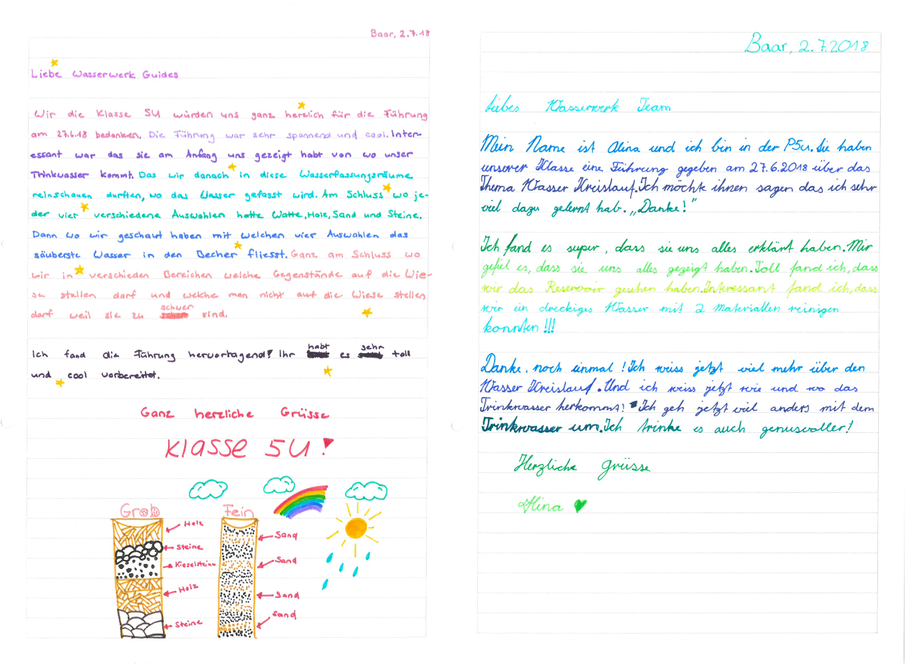 Baar, 2.7.18
Liebe Wasserwerk Guides
Wir die Klasse 5U würden uns ganz herzlich für die Führung
am 27.6.18 bedanken. Die Führung war sehr spannend und cool. Inter-
essant war das sie am Anfang uns gezeigt habt von wo unser
Trinkwasser kommt. Das wir danach in diese Wasserfassungsräume
reinschauen durften, wo das Wasser gefasst wird. Am Schluss wo je-
der vier verschiedene Auswahlen hatte Watte, Holz, Sand und Steine.
Dann wo wir geschaut haben mit welchen vier Auswahlen das
säuberste Wasser in den Becher fliesst. Ganz am Schluss wo
wir in verschieden Bereichen welche Gegenstände auf die Wie-
se stellen darf und welche man nicht auf die Wiese stellen
darf weil sie zu schwer sind.
Ich fand die Führung hervortagend! Ihr habt es sehr toll
und cool vorbereitet.
Ganz herzliche Grüsse
Klasse 5U!
Grob
Holz
Steine
Kieselsteine
Holz
Steine
Fein
Sand
Sand
Sand
Sand
Baar, 2.7.2018
Liebes Wasserwerk Team
Mein Name ist Alina und ich bin in der P5u. Sie haben
unserer Klasse eine Führung gegeben am 27.6.2018 über das
Thema Wasser Kreislauf. Ich möchte ihnen sagen das ich sehr
viel dazu gelernt hab. „Danke!"
Ich fand es super, dass sie uns alles erklärt haben. Mir
gefiel es, dass sie uns alles gezeigt haben. Toll fand ich, dass
wir das Reservoir gesehen haben. Interessant fand ich, dass
wir ein dreckiges Wasser mit 2 Materiallen reinigen
konnten !!!
Danke, noch einmal! Ich weiss jetzt viel mehr über den
Wasser Kreislauf. Und ich weiss jetzt wie und wo das
Trinkwasser herkommt! Ich geh jetzt viel anders mit dem
Trinkwasser um. Ich trinke es auch genussvoller!
Herzliche Grüsse
Alina